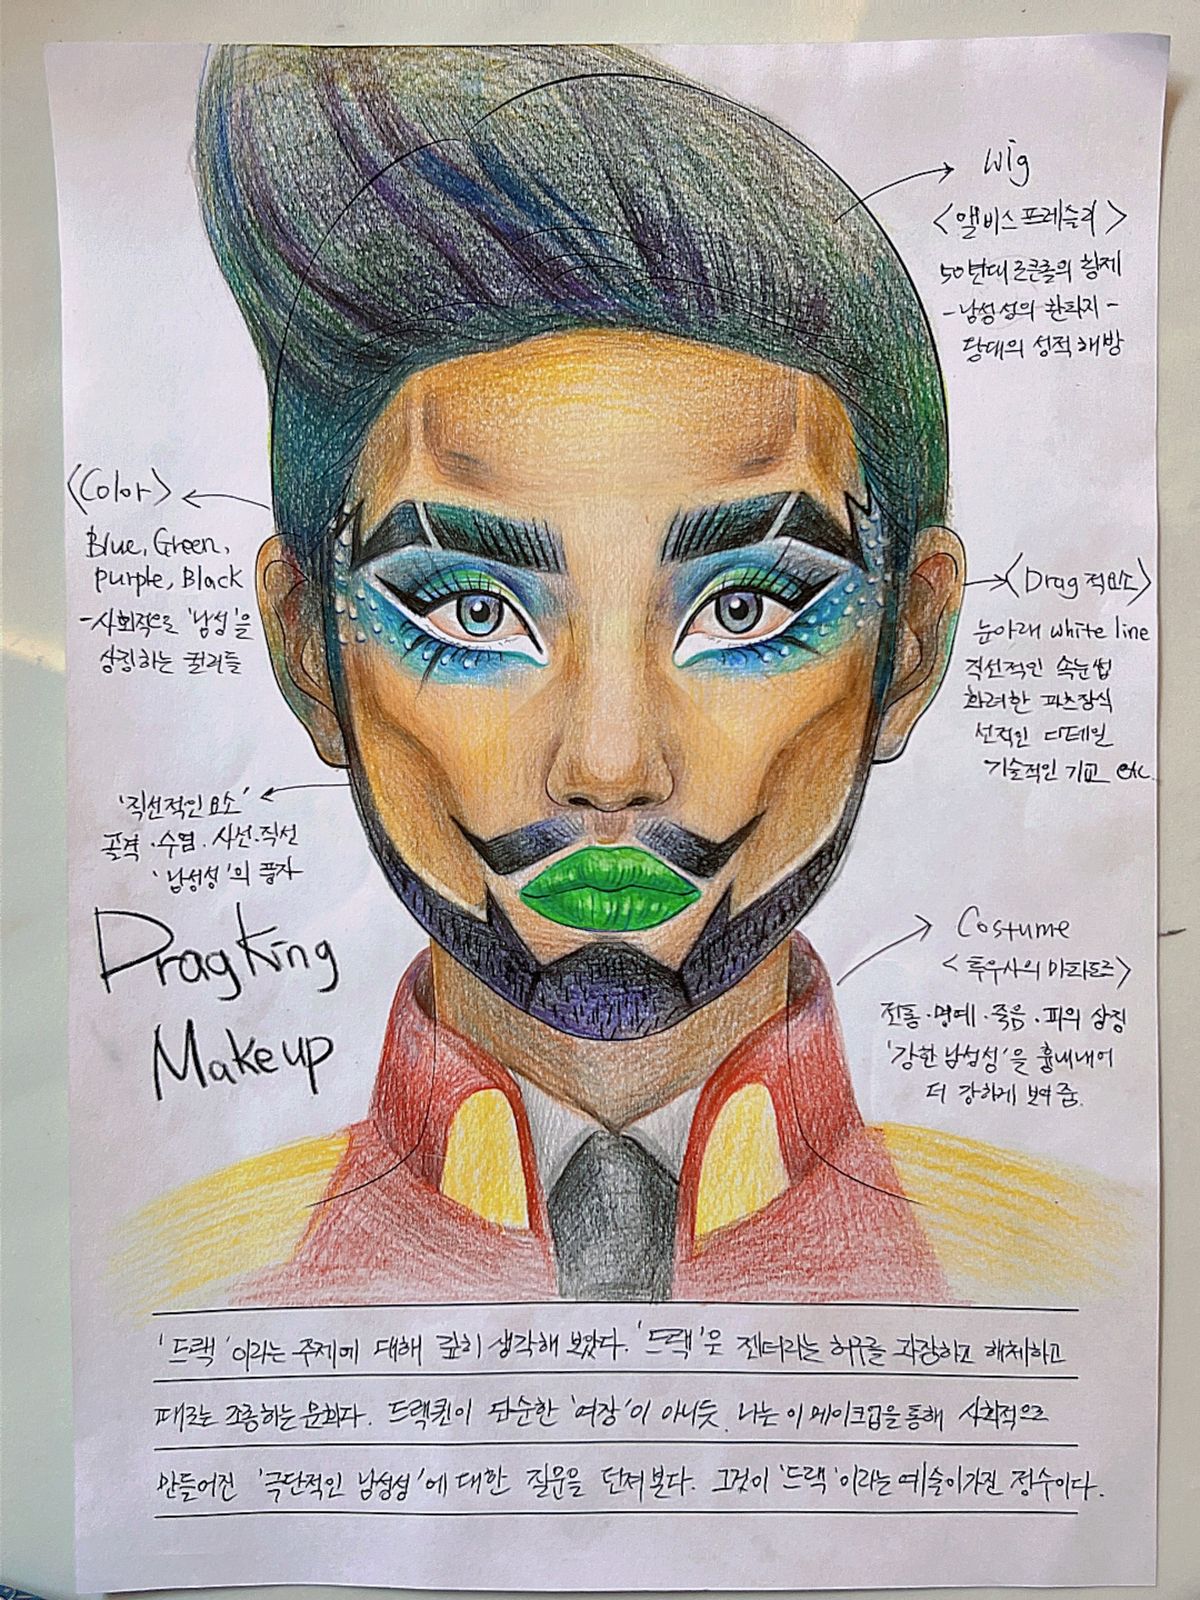 wig
<앨비스 프레슬리>
50년대 로큰롤의 황제
-남성성의 환타지-
당대의 성적 해방
<Color>
Blue, Green,
purple, Black
-사회적으로 '남성'을
상징하는 컬러들
<Drag적요소>
눈아래 white line
직선적인 속눈썹
화려한 파츠장식
선적인 디테일
기술적인 기교 etc.
'직선적인 요소'
골격·수염·사선·직선
'남성성'의 풍자
Drag King
Makeup
Costume
<투우사의 마타도르>
전통·명예·죽음·피의 상징
'강한 남성성'을 흉내내어
더 강하게 보여줌.
'드랙'이라는 주제에 대해 깊히 생각해 보았다. '드랙'은 젠더라는 허구를 과장하고 해체하고
때로는 조롱하는 문화다. 드랙퀸이 단순한 '여장'이 아니듯, 나는 이 메이크업을 통해 사회적으로
만들어진 '극단적인 남성성'에 대한 질문을 던져본다. 그것이 '드랙'이라는 예술이 가진 정수이다.